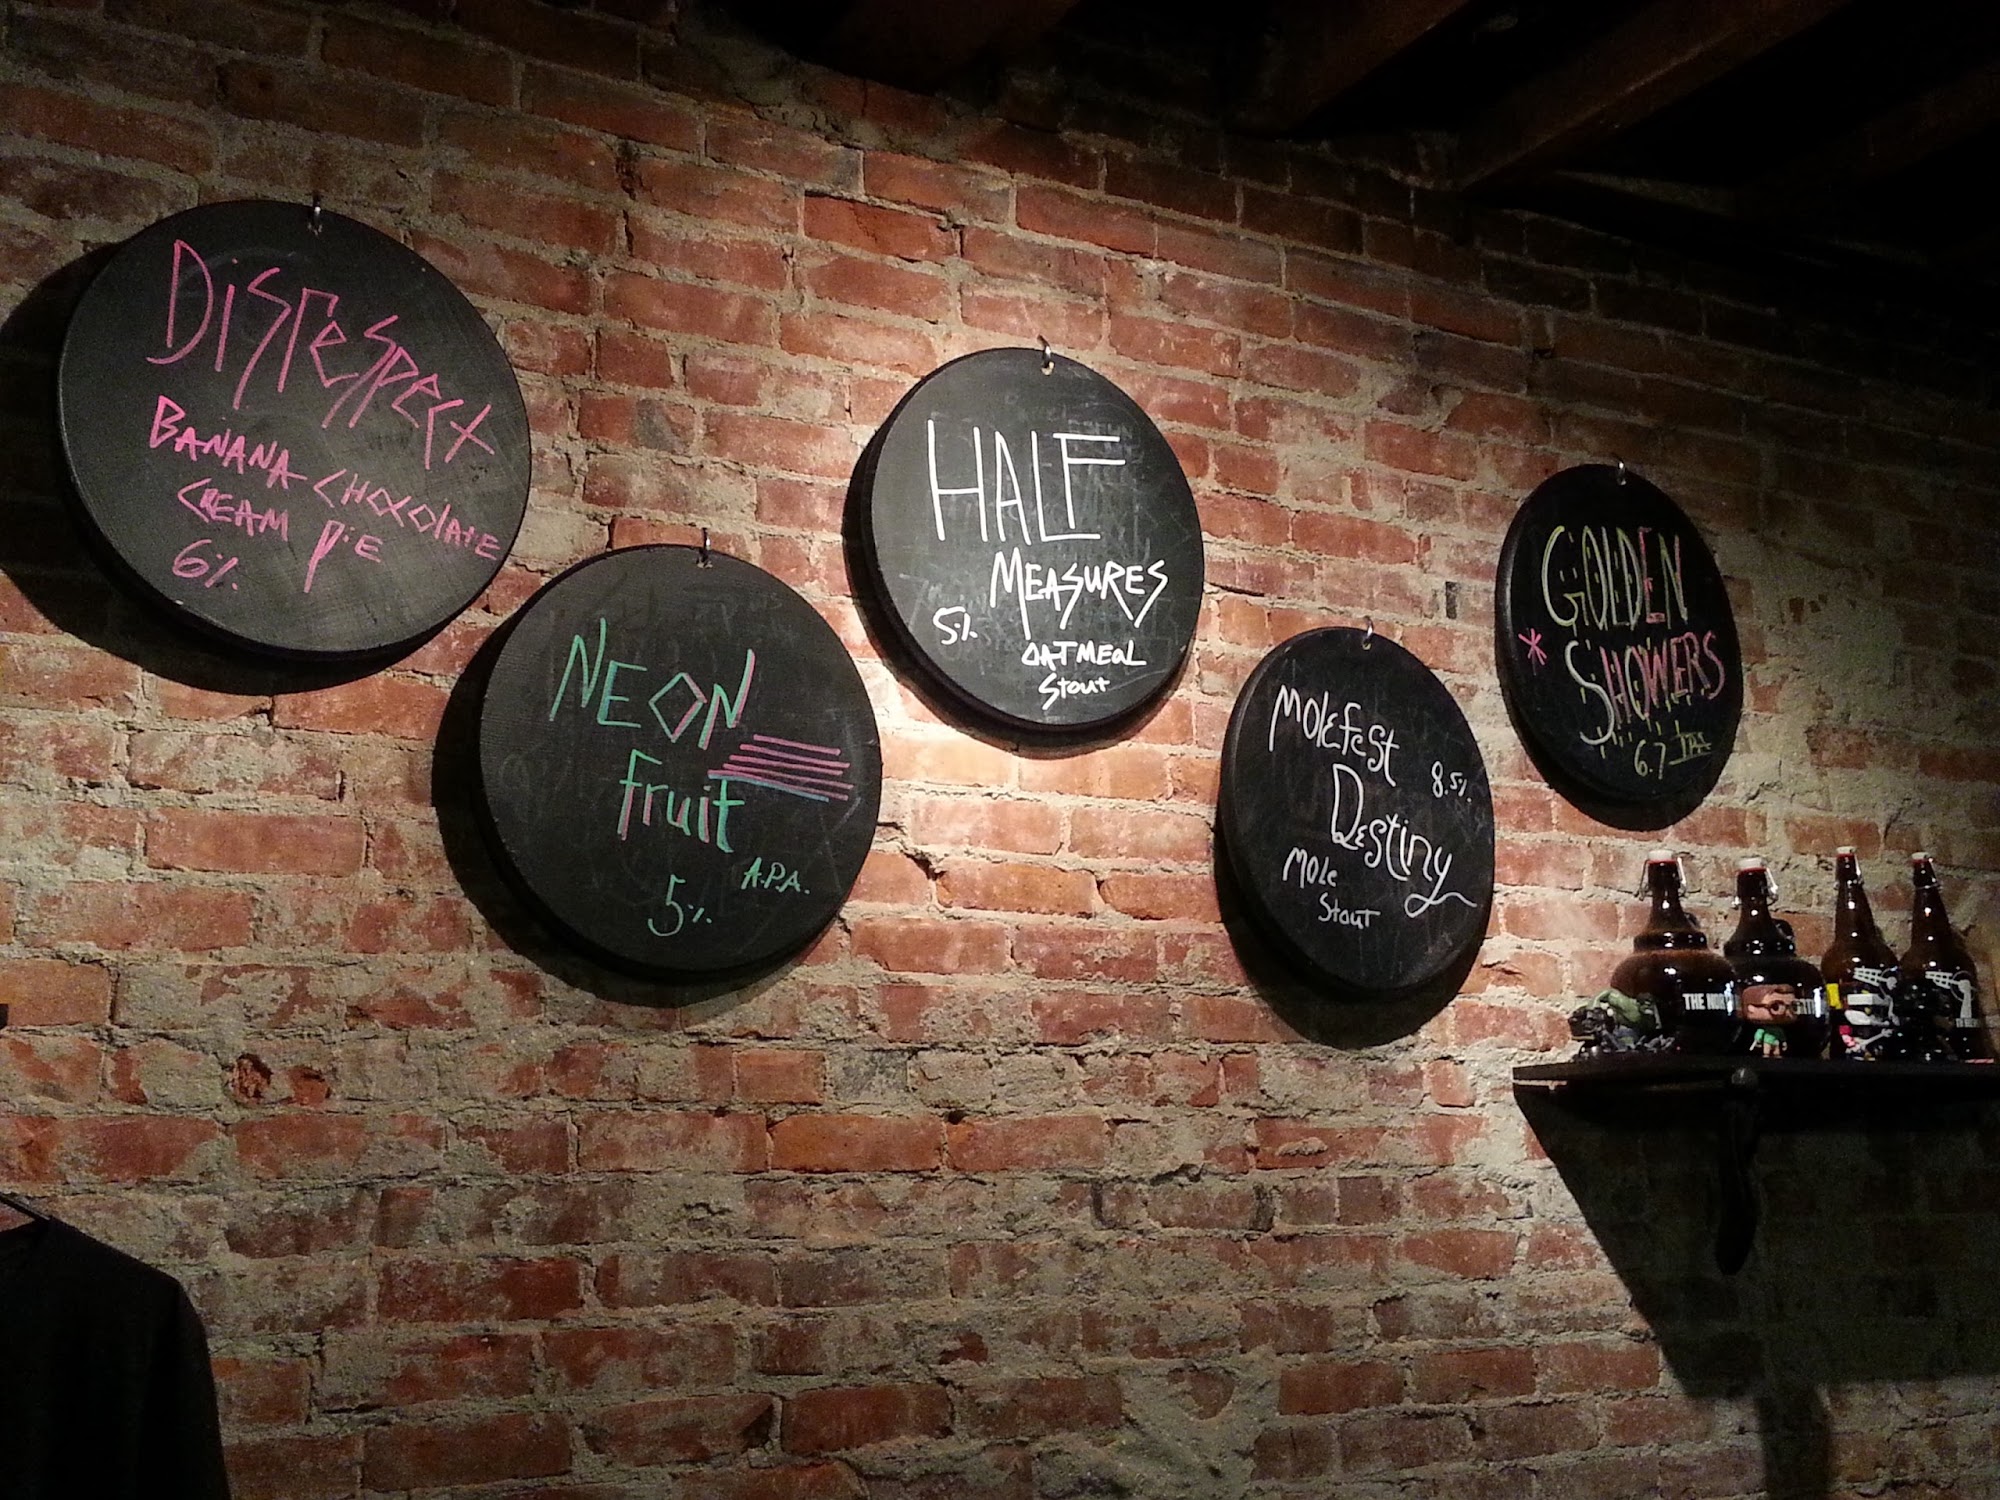 Disrespect
BANANA CHOCOLATE
CREAM PIE
6%
NEON
fruit
A.P.A.
5%
HALF
MEASURES
5%
OATMEAL
Stout
MOLEfEST
8.5%
DEstiny
MOLE
Stout
GOLDEN
* SHOWERS
6.7 IPA
THE NOR